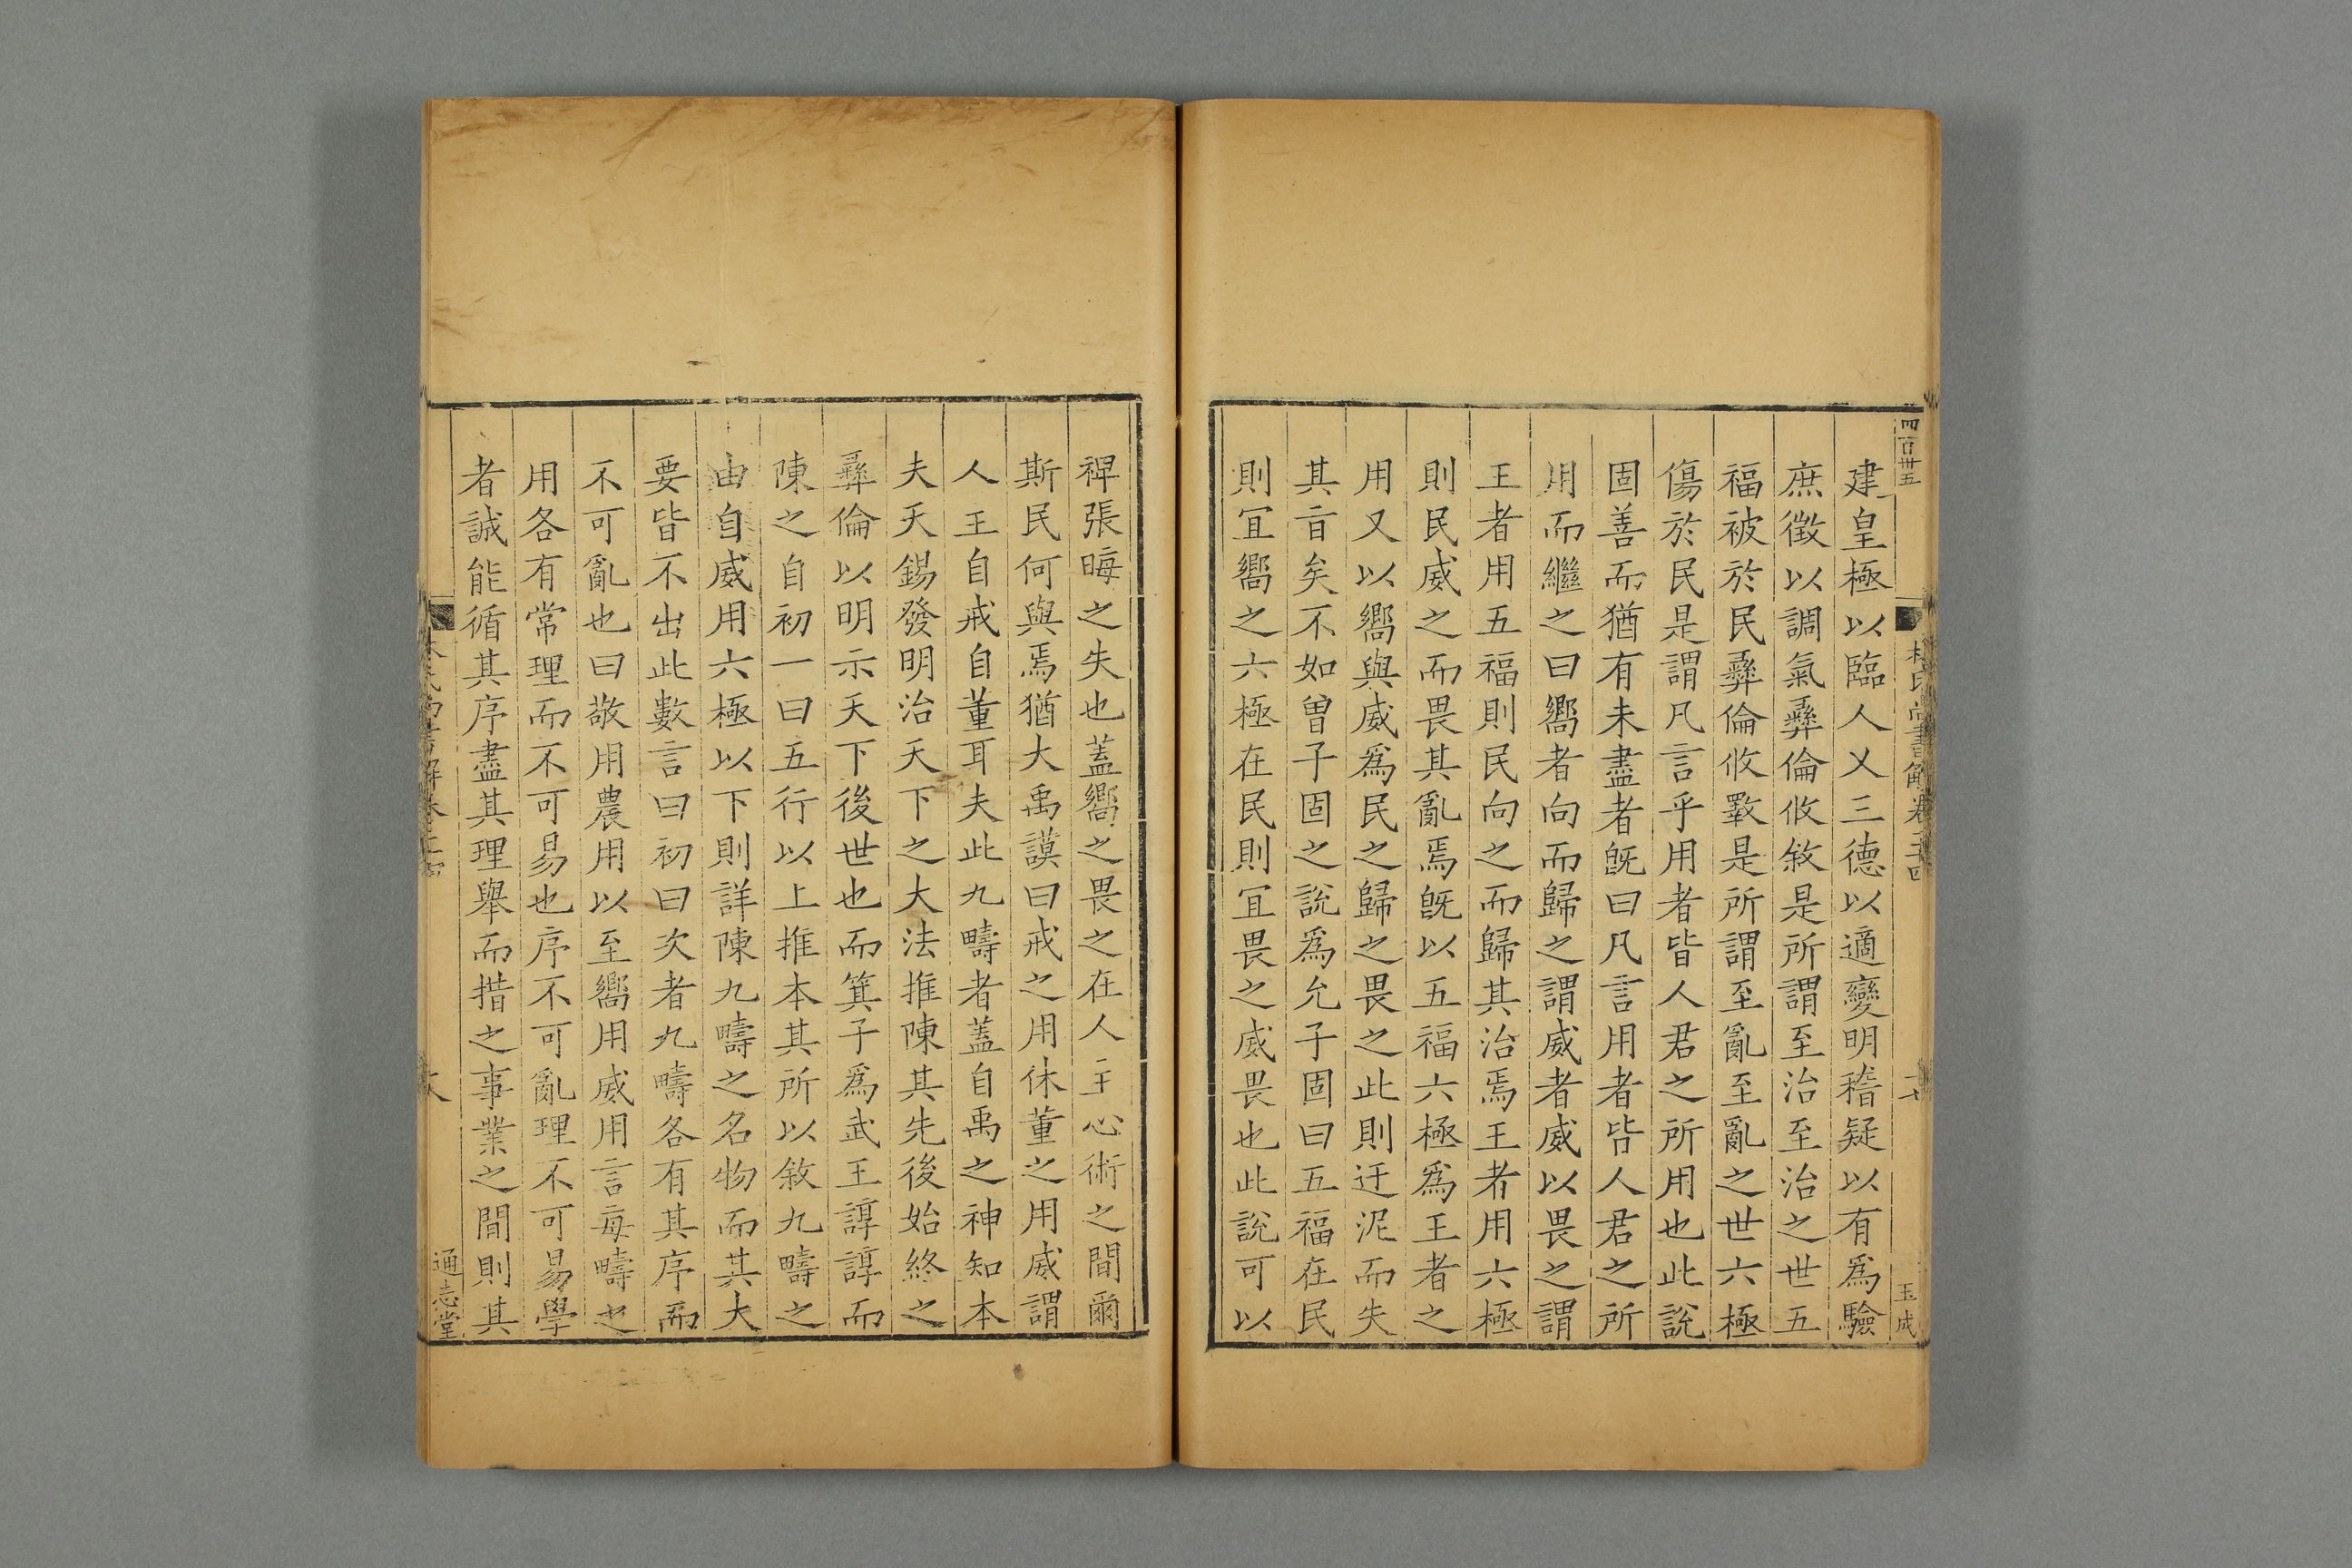 四百卅五
林氏尚書解卷二十四
玉成
建皇極以臨人乂三德以適變明稽疑以有爲驗
庶徴以調氣彞倫攸敘是所謂至治至治之世五
福被於民彞倫攸斁是所謂至亂至亂之世六極
傷於民是謂凡言乎用者皆人君之所用也此說
固善而猶有未盡者旣曰凡言用者皆人君之所
用而繼之曰嚮者向而歸之謂威者威以畏之謂
王者用五福則民向之而歸其治焉王者用六極
則民威之而畏其亂焉旣以五福六極爲王者之
用又以嚮與威爲民之歸之畏之此則迂泥而失
其㫖矣不如曽子固之說爲允子固曰五福在民
則宜嚮之六極在民則宜畏之威畏也此說可以
稗張晦之失也蓋嚮之畏之在人主心術之間爾
斯民何與焉猶大禹謨曰戒之用休董之用威謂
人主自戒自董耳夫此九疇者蓋自禹之神知本
夫天錫發明治天下之大法推陳其先後始終之
彞倫以明示天下後世也而箕子爲武王諄諄而
陳之自初一曰五行以上推本其所以敘九疇之
由自威用六極以下則詳陳九疇之名物而其大
要皆不出此數言曰初曰次者九疇各有其序而
不可亂也曰敬用農用以至嚮用威用言每疇之
用各有常理而不可易也序不可亂理不可易學
者誠能循其序盡其理舉而措之事業之間則其
通志堂